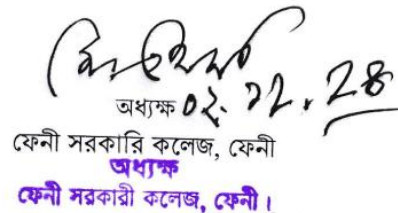 অধ্যক্ষ ০২.১২.২৪
ফেনী সরকারি কলেজ, ফেনী
অধ্যক্ষ
ফেনী সরকারী কলেজ, ফেনী।